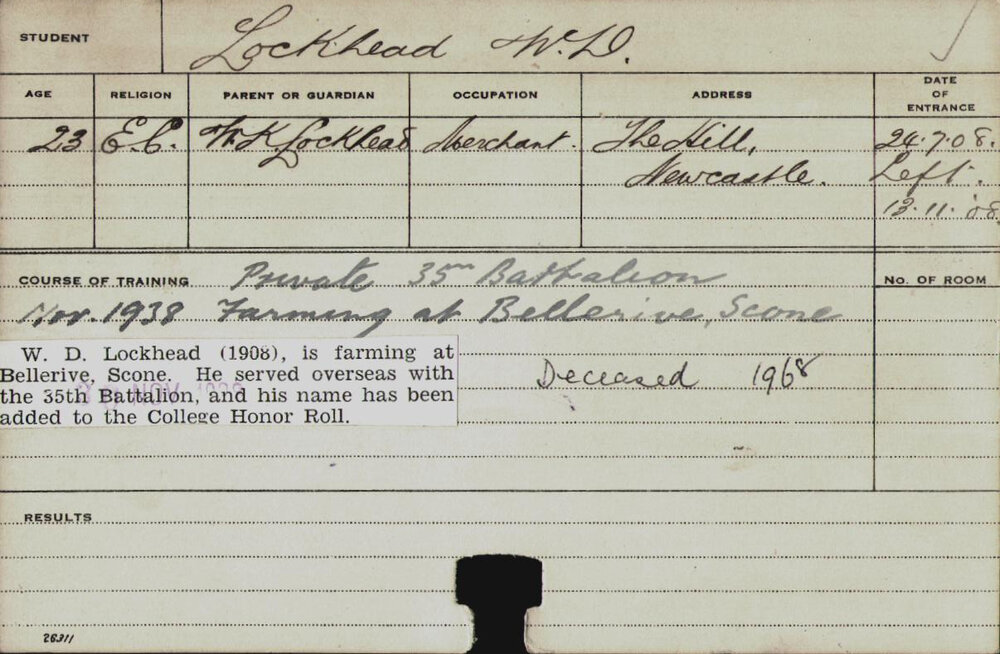 STUDENT Lockhead W.D.
AGE RELIGION PARENT OR GUARDIAN OCCUPATION ADDRESS DATE OF ENTRANCE
23 E.C. W.K Lockhead Merchant. The Hill, 24.7.08.
Newcastle. Left.
13.11.08.
COURSE OF TRAINING Private 35th Battalion No. OF ROOM
Nov. 1938 Farming at Bellerive, Scone
W. D. Lockhead (1908), is farming at
Bellerive, Scone. He served overseas with
the 35th Battalion, and his name has been
added to the College Honor Roll.
Deceased 1968
RESULTS
26311